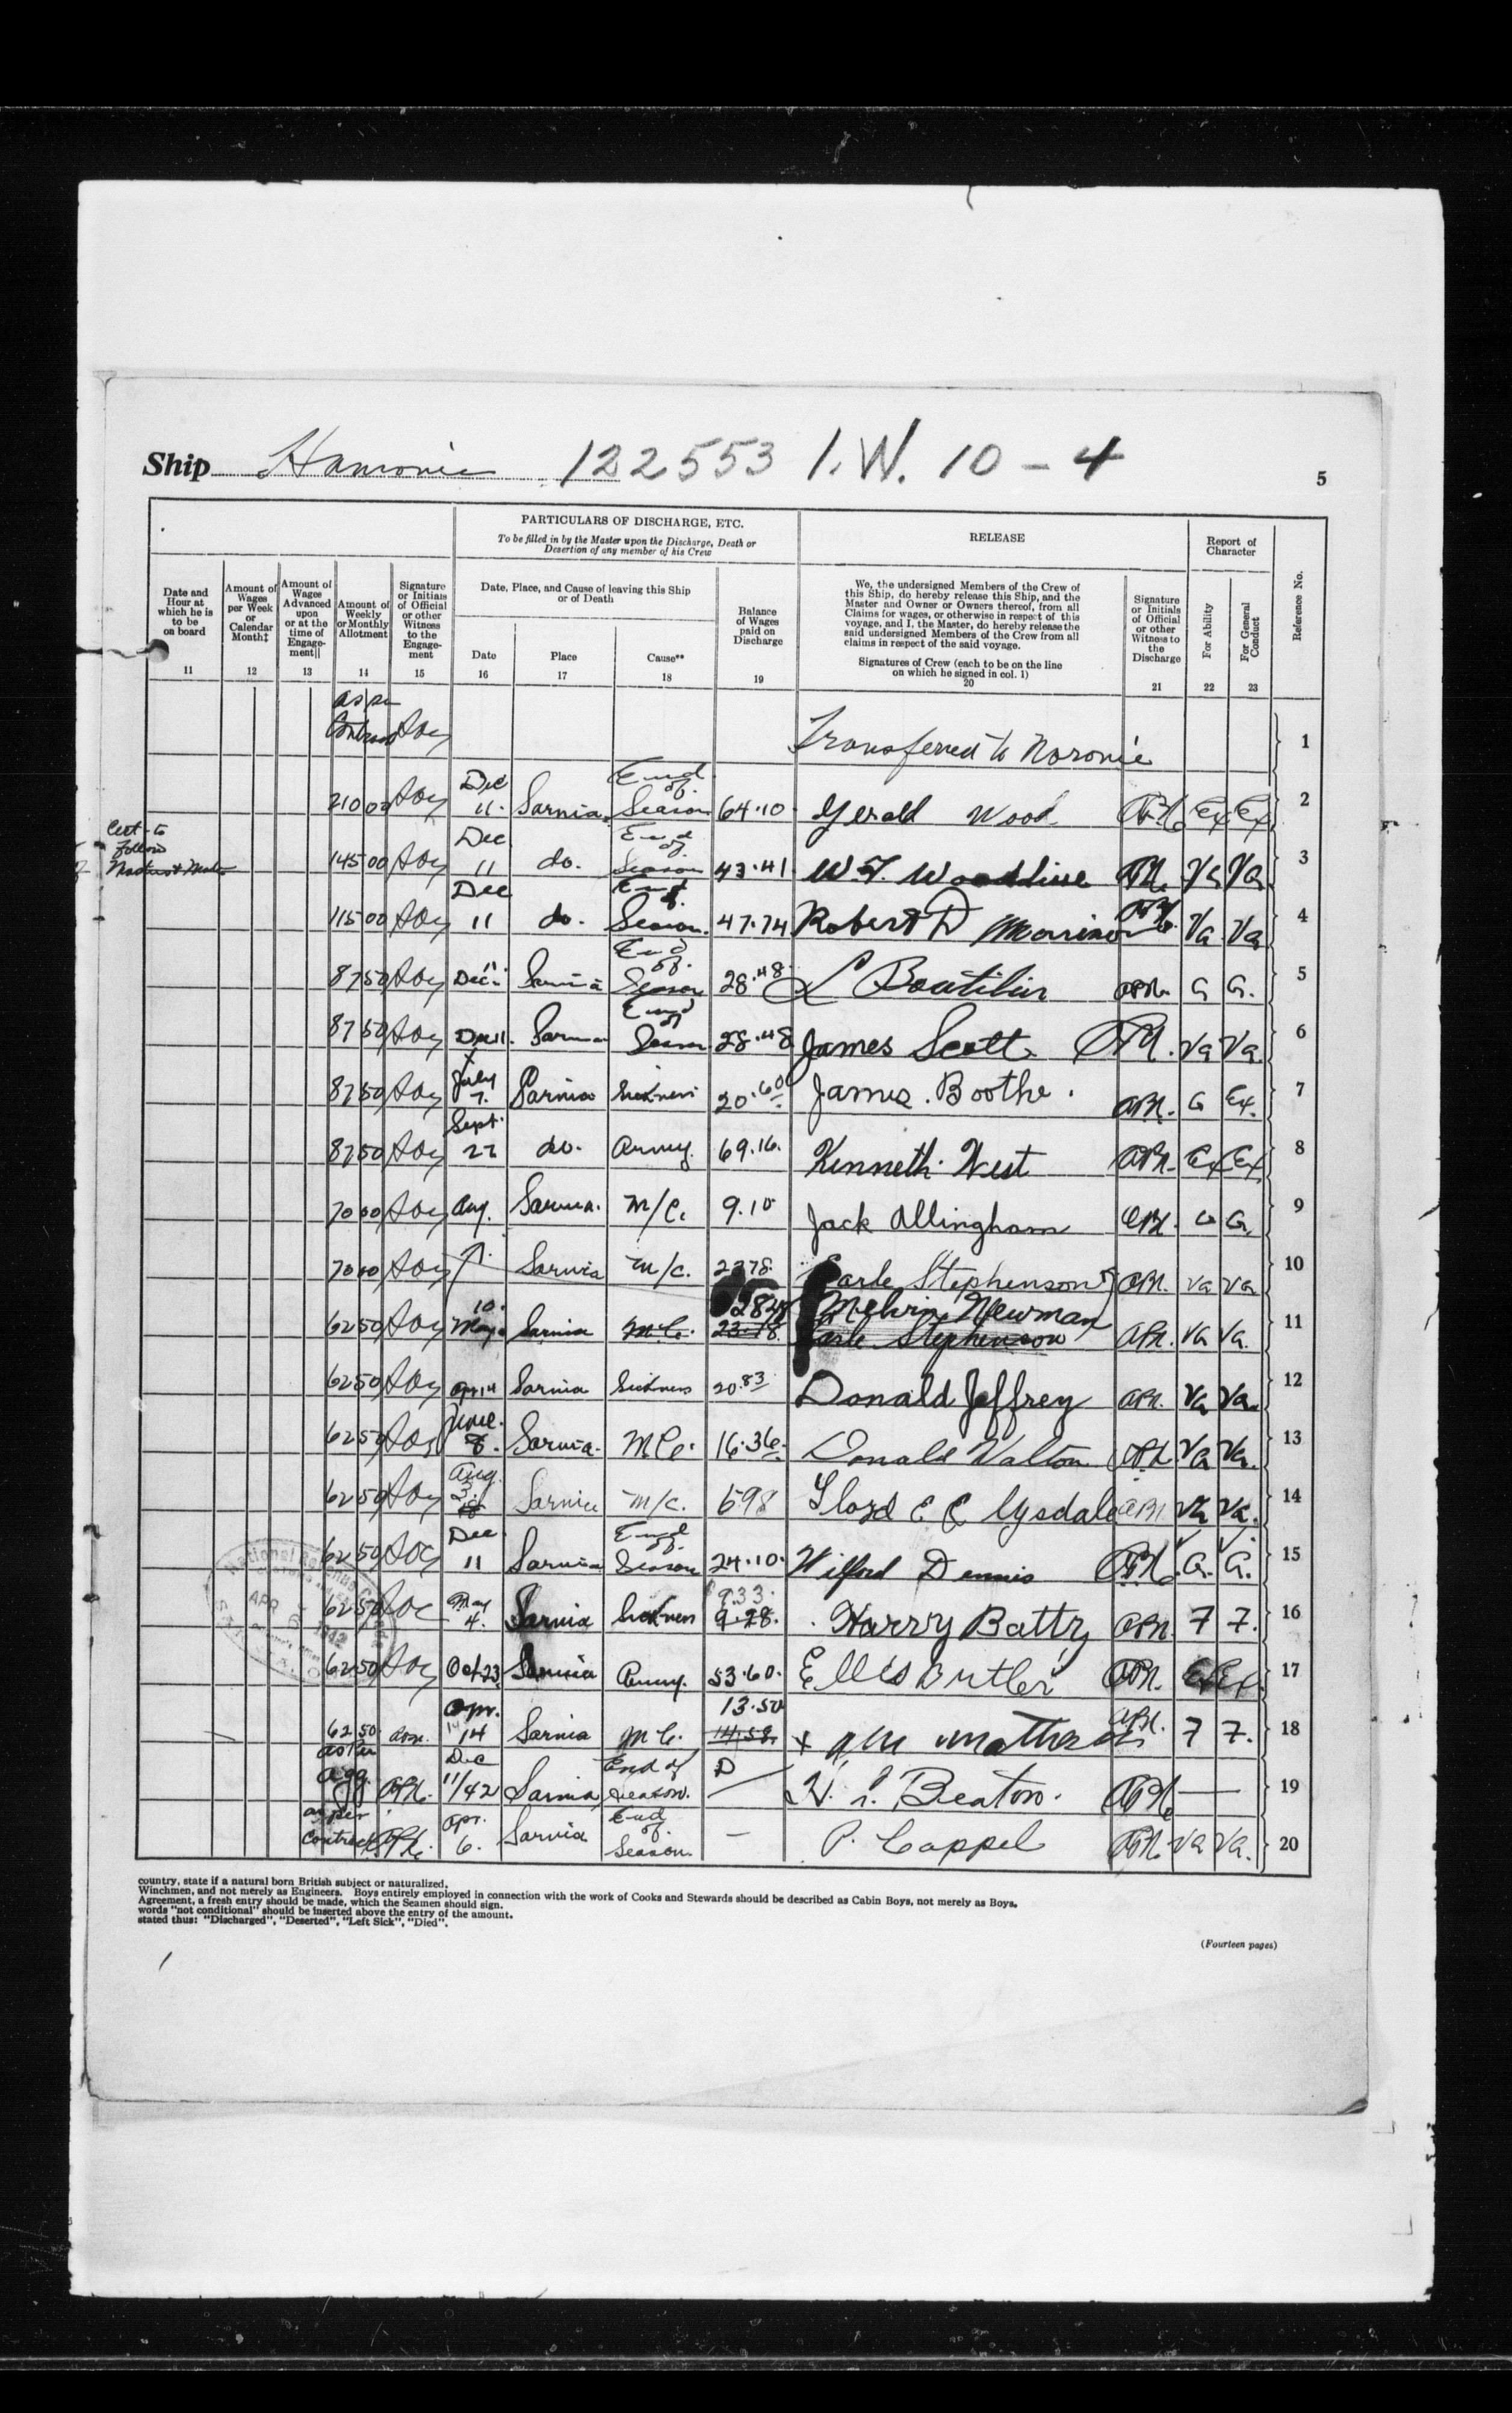 Ship Hamonic 122553 I.W. 10-4
5
PARTICULARS OF DISCHARGE, ETC.
To be filled in by the Master upon the Discharge, Death or
Desertion of any member of his Crew
RELEASE
Report of
Character
Date and
Hour at
which he is
to be
on board
11
Amount of
Wages
per Week
or
Calendar
Month‡
12
Amount of
Wage
Advanced
upon
or at the
time of
Engage-
ment||
13
Amount of
Weekly
or Monthly
Allotment
14
Signature
or Initials
of Official
or other
Witness
to the
Engage-
ment
15
Date, Place, and Cause of leaving this Ship
or of Death
Date
16
Place
17
Cause**
18
Balance
of Wages
paid on
Discharge
19
We, the undersigned Members of the Crew of
this Ship, do hereby release this Ship, and the
Master and Owner or Owners thereof, from all
Claims for wages, or otherwise in respect of this
voyage, and I, the Master, do hereby release the
said undersigned Members of the Crew from all
claims in respect of the said voyage.
Signatures of Crew (each to be on the line
on which he signed in col. 1)
20
Signature
or Initials
of Official
or other
Witness to
the
Discharge
21
For Ability
22
For General
Conduct
23
Reference No.
as per
Contract Transferred to Noronic 1
210 00 Dec 11. Sarnia End of Season 64.10 Gerald Wood Ex Ex 2
Cert to
follow
145 00 Dec 11 do. End of Season 43.41 W. Woodline Va Va 3
115 00 Dec 11 do. End of Season 47.74 Robert D Va Va 4
87 50 Dec 11 Sarnia End of Season 28.48 L Boutilier G G. 5
87 50 Dec 11. Sarnia End of Season 28.48 James Scott Va Va. 6
87 50 July 7. Sarnia Sickness 20.60 James Boothe. G Ex. 7
87 50 Sept. 27 do. Army. 69.16. Kenneth West Ex Ex 8
70 00 Aug. Sarnia. M/C. 9.10 Jack Allingham G G 9
70 00 Sarnia M/C. 2378 Earle Stephenson Va Va 10
62 50 May 10. Sarnia M.C. 23.18 Melvin Newman Va Va. 11
Earle Stephenson
62 50 Apr 14 Sarnia Sickness 20.83 Donald Jeffrey Va Va. 12
62 50 June 8. Sarnia. M.C. 16.36. Donald Walton Va Va. 13
62 50 Aug. 3. Sarnia M/C. 698 Lloyd E C Lysdale Va Va. 14
62 50 Dec 11 Sarnia End of Season 24.10. Wilford Dennis G. G. 15
62 50 May 4. Sarnia Sickness 9.33. 9.28. Harry Batty 7 7. 16
62 50 Oct 23 Sarnia Army. 53.60. Ellis Butler Ex Ex. 17
62 50 Apr. 14 Sarnia M.C. 13.50 14.58. 7 7. 18
as per
agg. Dec 11/42 Sarnia End of Season. — Beaton. — 19
as per
contract Apr. 6. Sarnia End of Season. — P. Cappel Va Va. 20
APR 6 1942
country, state if a natural born British subject or naturalized.
Winchmen, and not merely as Engineers. Boys entirely employed in connection with the work of Cooks and Stewards should be described as Cabin Boys, not merely as Boys.
Agreement, a fresh entry should be made, which the Seamen should sign.
words "not conditional" should be inserted above the entry of the amount.
stated thus: "Discharged", "Deserted", "Left Sick", "Died".
(Fourteen pages)